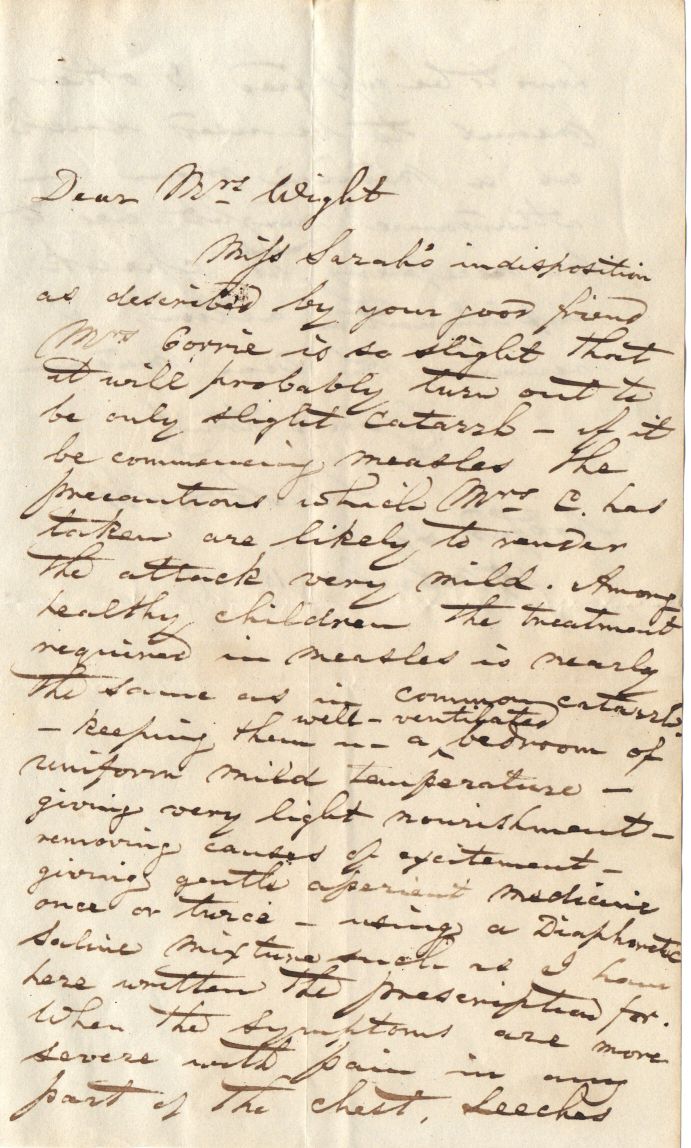 Dear Mrs Wight
Miss Sarah's indisposition
as described by your good friend
Mrs Corrie is so slight that
it will probably turn out to
be only slight Catarrh – if it
be commencing measles the
precautions which Mrs C. has
taken are likely to render
the attack very mild. Among
healthy children the treatment
required in measles is nearly
the same as in common catarrh.
well-ventilated
– keeping them in a bedroom of
uniform mild temperature –
giving very light nourishment –
removing causes of excitement –
giving gentle aperient medicine
once or twice – using a Diaphoretic
saline mixture such as I have
here written the prescription for.
When the symptoms are more
severe with pain in any
part of the chest, Leeches